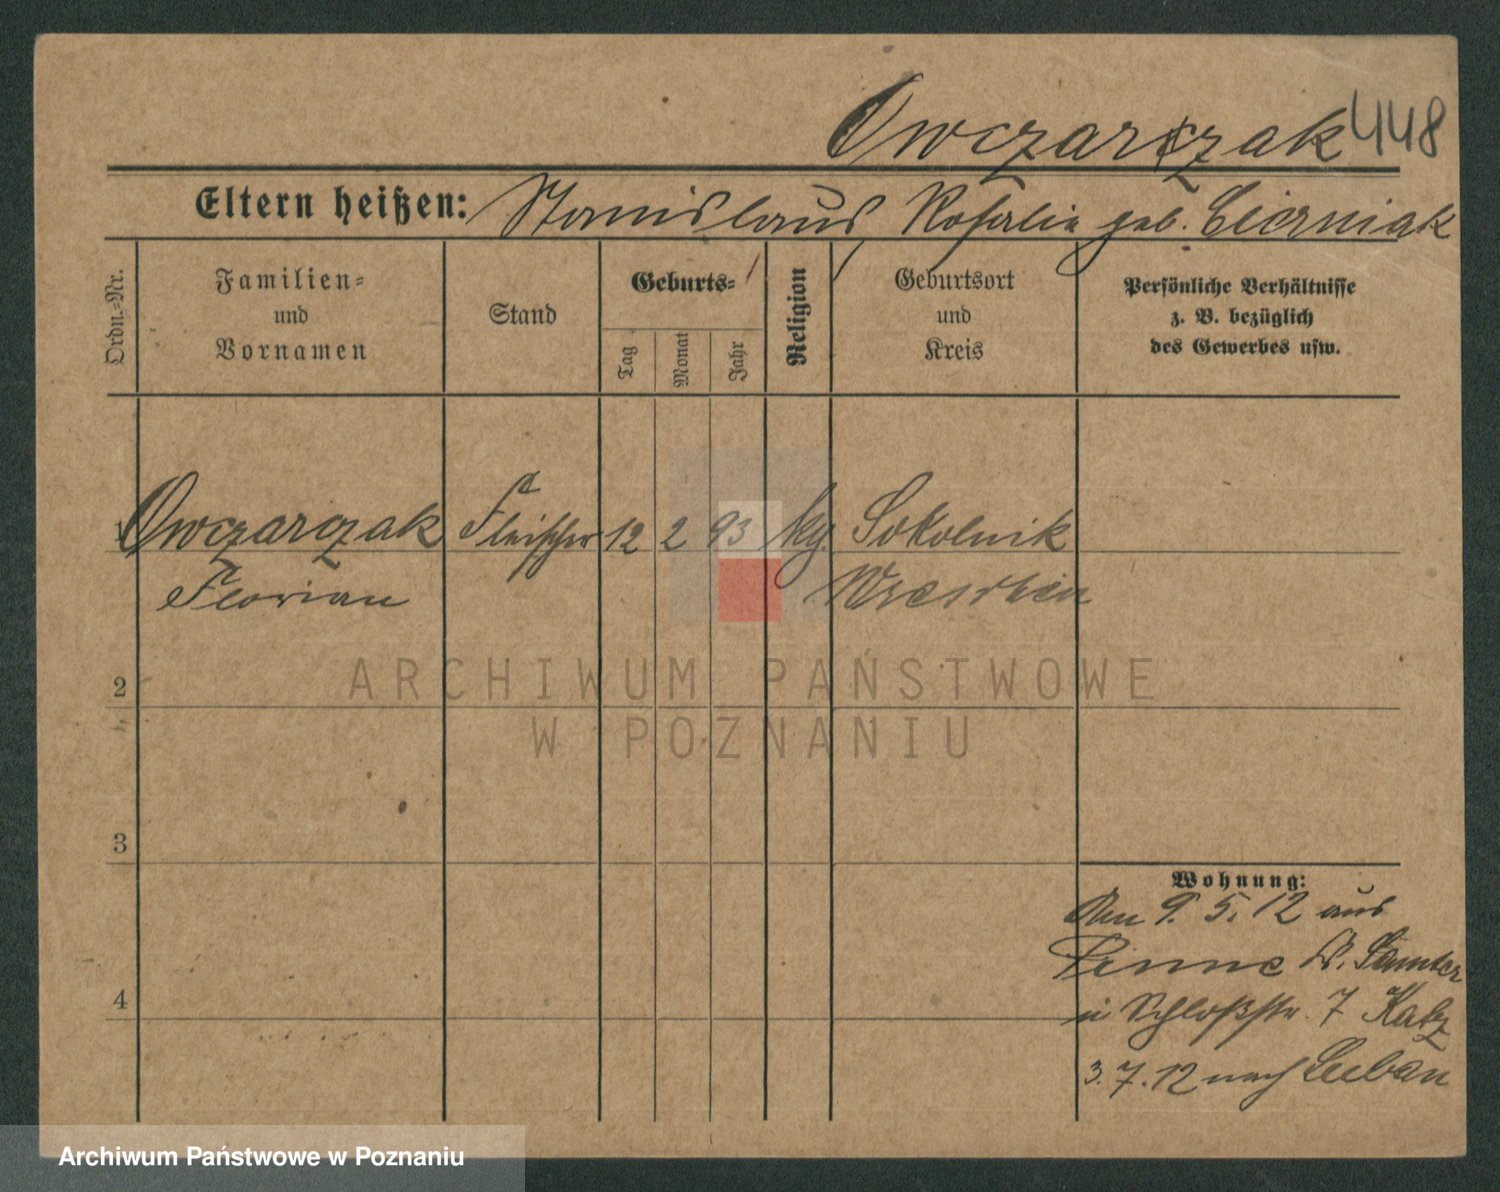 Owczarczak 448
Eltern heißen: Stanislaus Rosalie geb. Cierniak
Ordn.-Nr.
Familien-
und
Vornamen
Stand
Geburts-
Tag
Monat
Jahr
Religion
Geburtsort
und
Kreis
Persönliche Verhältnisse
z. B. bezüglich
des Gewerbes usw.
1 Owczarczak Fleischer 12 2 93 kg. Sokolnik
Florian Wreschen
2
3
4
Wohnung:
Am 9. 5. 12 aus
Pinne K. Samter
in Schloßstr. 7 Katz
3. 7. 12 nach Luban
ARCHIWUM PAŃSTWOWE
W POZNANIU
Archiwum Państwowe w Poznaniu